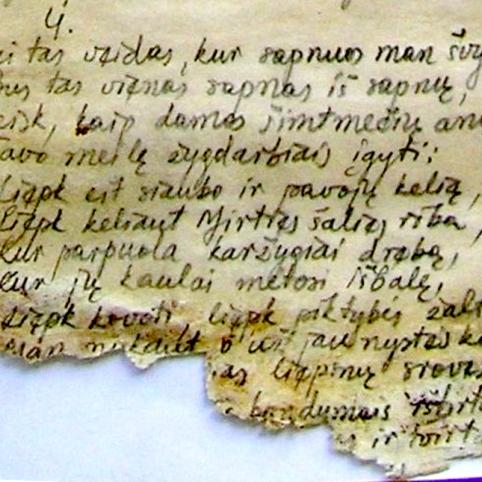 4.
ei tas veidas, kur sapnuos man švy
bus tas vienas sapnas iš sapnų,
eisk, kaip damos šimtmečių an
avo meilę žygdarbiais įgyti:
Liepk eit siaubo ir pavojų kelią,
Liepk keliaut Mirties šalies riba,
kur parpuola karžygiai drąbą,
kur jų kaulai mėtosi išbalę,
Liepk kovoti, liepk piktybės žal
man nukaut
as liepsnų srove
bandymais ištirt
ir tvirt